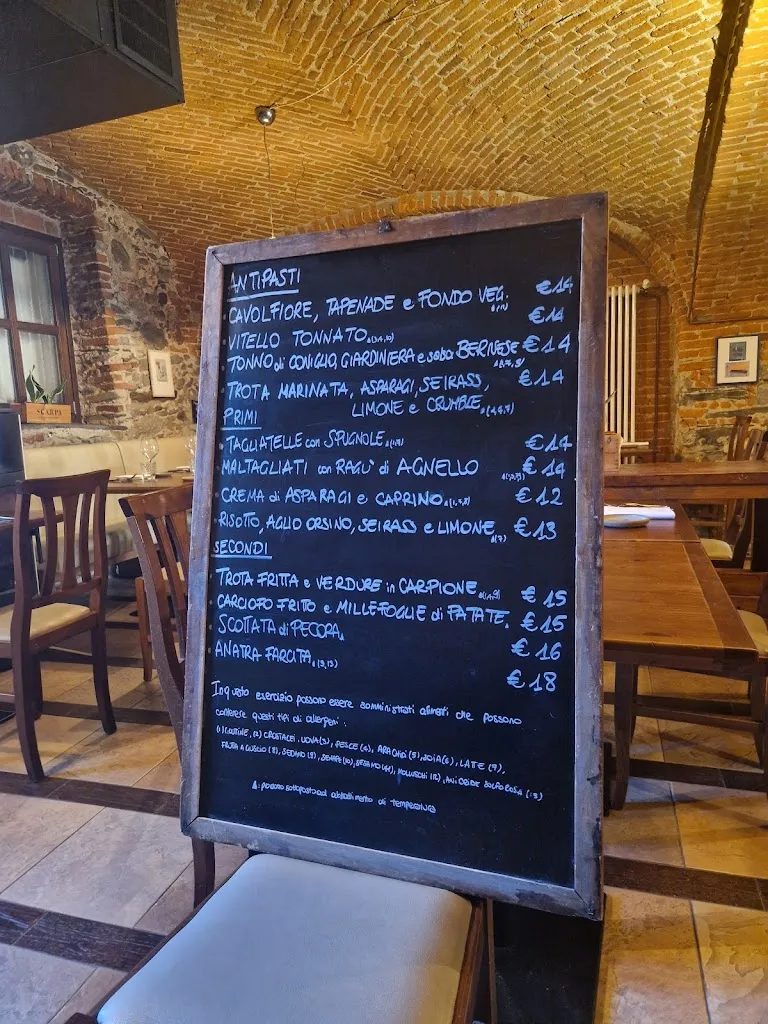 ANTIPASTI
CAVOLFIORE, TAPENADE e FONDO VEG. €14
VITELLO TONNATO €14
TONNO di CONIGLIO, GIARDINIERA e salsa BERNESE €14
TROTA MARINATA, ASPARAGI, SEIRASS, €14
LIMONE e CRUMBLE
PRIMI
TAGLIATELLE con SPUGNOLE €14
MALTAGLIATI con RAGU' di AGNELLO €14
CREMA di ASPARAGI e CAPRINO €12
RISOTTO, AGLIO ORSINO, SEIRASS e LIMONE (7) €13
SECONDI
TROTA FRITTA e VERDURE in CARPIONE €15
CARCIOFO FRITTO e MILLEFOGLIE di PATATE. €15
SCOTTATA di PECORA €16
ANATRA FARCITA €18
In questo esercizio possono essere somministrati alimenti che possono
contenere questi tipi di allergeni:
(1) GLUTINE, (2) CROSTACEI, UOVA (3), PESCE (4), ARACHIDI (5), SOIA (6), LATTE (7),
FRUTTA A GUSCIO (8), SEDANO (9), SENAPE (10), SESAMO (11), MOLLUSCHI (12), ANIDRIDE SOLFOROSA (13)
Δ: possono sottoposto ad abbattimento di temperatura
SCARPA